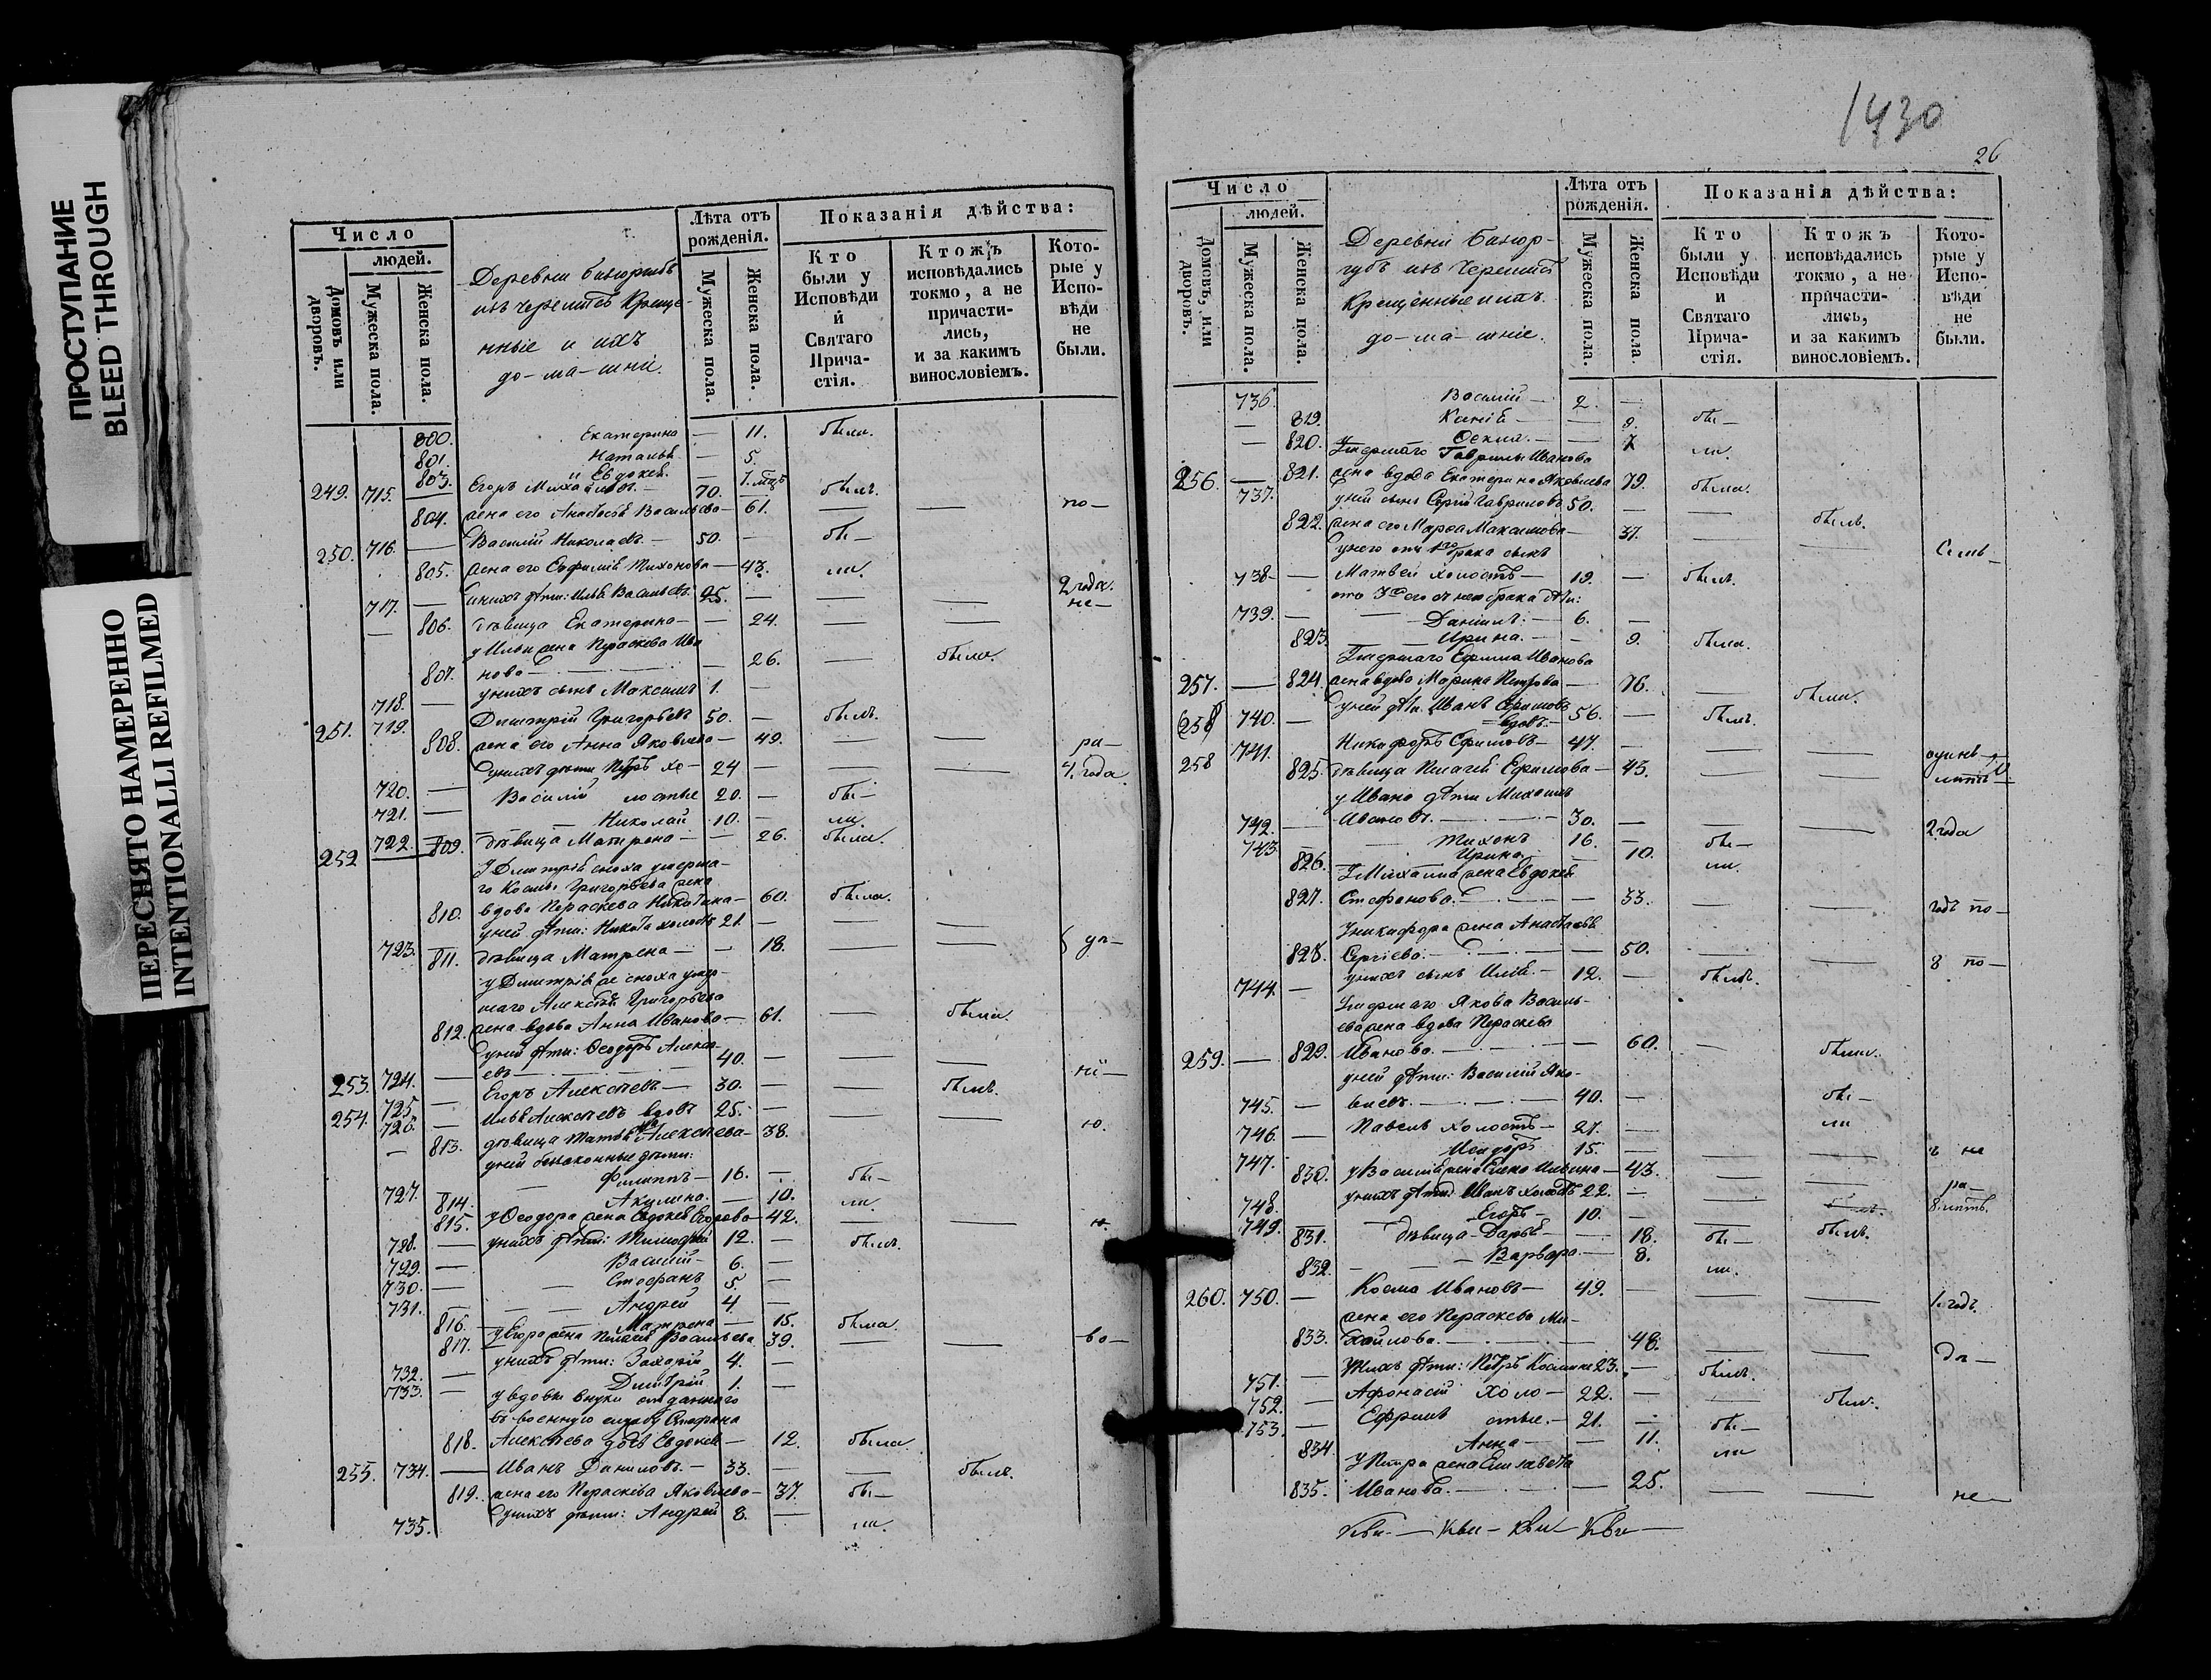 ПРОСТУПАНИЕ
BLEED THROUGH
ПЕРЕСНЯТО НАМЕРЕННО
INTENTIONALLI REFILMED
Число
людей.
Домовъ или дворовъ.
Мужеска пола.
Женска пола.
Деревни
изъ Черемисъ Креще-
нные и ихъ
до-ма-шніи.
Лѣта отъ рожденія.
Мужеска пола.
Женска пола.
Показанія дѣйства:
Кто были у Исповѣди и Святаго Прича-стія.
Ктожъ исповѣдались токмо, а не причасти-лись, и за какимъ винословіемъ.
Кото-рые у Испо-вѣди не были.
800. Екатерина — 11. была.
801. Наталья — 5.
803. и Евдокея — 1.
249. 715. Егоръ Михайловъ — 70. — былъ.
804. жена его Анастасія Васильева — 61. — — по —
250. 716. — Василій Николаевъ — 50. — бы —
805. жена его Евфимія Тихонова — 43. ли. 2 года.
717. — у нихъ дѣти: Илья Васильевъ 25. — — — не —
— 806. дѣвица Екатерина — — 24. — —
у Ильи жена Параскева Ива
807. нова — — 26. — была.
718. — у нихъ сынъ Максимъ 1. —
251. 719. Димитрій Григорьевъ 50. — былъ.
808. жена его Анна Яковлева — 49. — — ра —
у нихъ дѣти Петръ хо — 24 — — — 4. года
720. — Василій лостые 20. — бы —
721. — Николай 10. — ли.
252 722. 809. дѣвица Матрена — — 26. была.
У Димитрія сноха умерша-
го Космы Григорьева жена
810. вдова Параскева Никитина — 60. была.
у ней дѣти: Никита холостъ 21. — — —
723. 811. дѣвица Матрена — — 18. — —
у Димитрія же сноха умер-
шаго Алексѣя Григорьева
812. жена вдова Анна Иванова — 61. — была
у ней дѣти: Ѳеодоръ Алексѣ-
253. 724. — евъ — 40. — — —
254. 725. — Егоръ Алексѣевъ — 30. — — былъ.
726. — Илья Алексѣевъ вдовъ 25. — — — ю.
— 813. дѣвица Татьяна Алексѣева — 38.
у ней беззаконные дѣти:
727. — Филиппъ — 16. — бы —
814. Акулина. — 10. ли.
815. у Ѳеодора жена Евдокея Егорова — 42. — — ю
728. — у нихъ дѣти: Тимофей 12. — былъ.
729. — Василій — 6. —
730. — — Стефанъ 5. —
731. — — Андрей 4. —
816. — Матрена — 15. была.
817. у Егора жена Пелагея Васильева 39. — — во —
732. — у нихъ дѣти: Захарій 4. —
733. — Димитрій 1. —
у вдовы внуки отданнаго
въ военную службу Стефана
818. Алексѣева дочь Евдокея — 12. была
255. 734. — Иванъ Даниловъ — 33. — — былъ.
819. жена его Параскева Яковлева — 37. бы —
735. у нихъ дѣти: Андрей 8. — ли.
1430
26
Число
людей.
Домовъ, или дворовъ.
Мужеска пола.
Женска пола.
Деревни
изъ Черемисъ
Крещенные и ихъ
до-ма-шніе.
Лѣта отъ рожденія.
Мужеска пола.
Женска пола.
Показанія дѣйства:
Кто были у Исповѣди и Святаго Прича-стія.
Ктожъ исповѣдались токмо, а не причасти-лись, и за какимъ винословіемъ.
Кото-рые у Испо-вѣди не были.
736. Василій — 2. —
— 819. — 9. бы —
— 820. Ѳекла. — — 7 ли.
Умершаго Гаврилы Иванова
256. — 821. жена вдова Екатерина Яковлева 79. была.
737. у ней сынъ Сергій Гавриловъ 50. — —
822. жена его Марѳа Максимова — 37. былъ.
у него отъ 1го брака сынъ
738. — Матвей холостъ — 19. — былъ.
739. — — Даніилъ — 6. —
823. — Ирина. — — 9. была.
Умершаго Ефима Иванова
257. — 824. жена вдова Марина Петрова — 76. — была.
258 740. — у ней дѣти Иванъ Ефимовъ вдовъ — 56. — былъ.
258 741. Никифоръ Ефимовъ — 47. — — —
825. дѣвица Пелагея Ефимова — 43. — —
у Ивана дѣти Михаилъ
742. — Ивановъ. — 30. — — — 2 года
743. — Тихонъ 16. — бы —
826. Ирина. — 10. ли.
У Михаила жена Евдокея
827. Стефанова. — 33. — — годъ по —
У Никифора жена Анастасія
828. Сергіева. — 50. — — 8 по —
744. — у нихъ сынъ Илія. — 12. — былъ.
Умершаго Якова Василь-
ева жена вдова Параскева
259. — 829. Иванова. — 60. — была.
у ней дѣти: Василій Яко-
745. — влевъ. — 40. — бы —
746. — Павелъ холостъ — 27. — ли
747. Исидоръ 15. — — —
830. у Василія жена Елена Ильина — 43. — —
748. у нихъ дѣти: Иванъ холостъ 22. —
749. — Егоръ — 10. —
831. дѣвица Дарья — 18. бы — былъ.
832. — Варвара — 8. ли.
260. 750. — Косма Ивановъ — 49. — — — 1. годъ.
жена его Параскева Ми-
833. хайлова. — 48. — —
751. — У нихъ дѣти: Петръ Косминъ 23. — былъ.
752. — Афонасій холо — 22. — был.
753. — Ефремъ стые. — 21. — бы —
834. Анна — — 11. ли
У Петра жена Елизавета
835. Иванова. — 25. — — не —